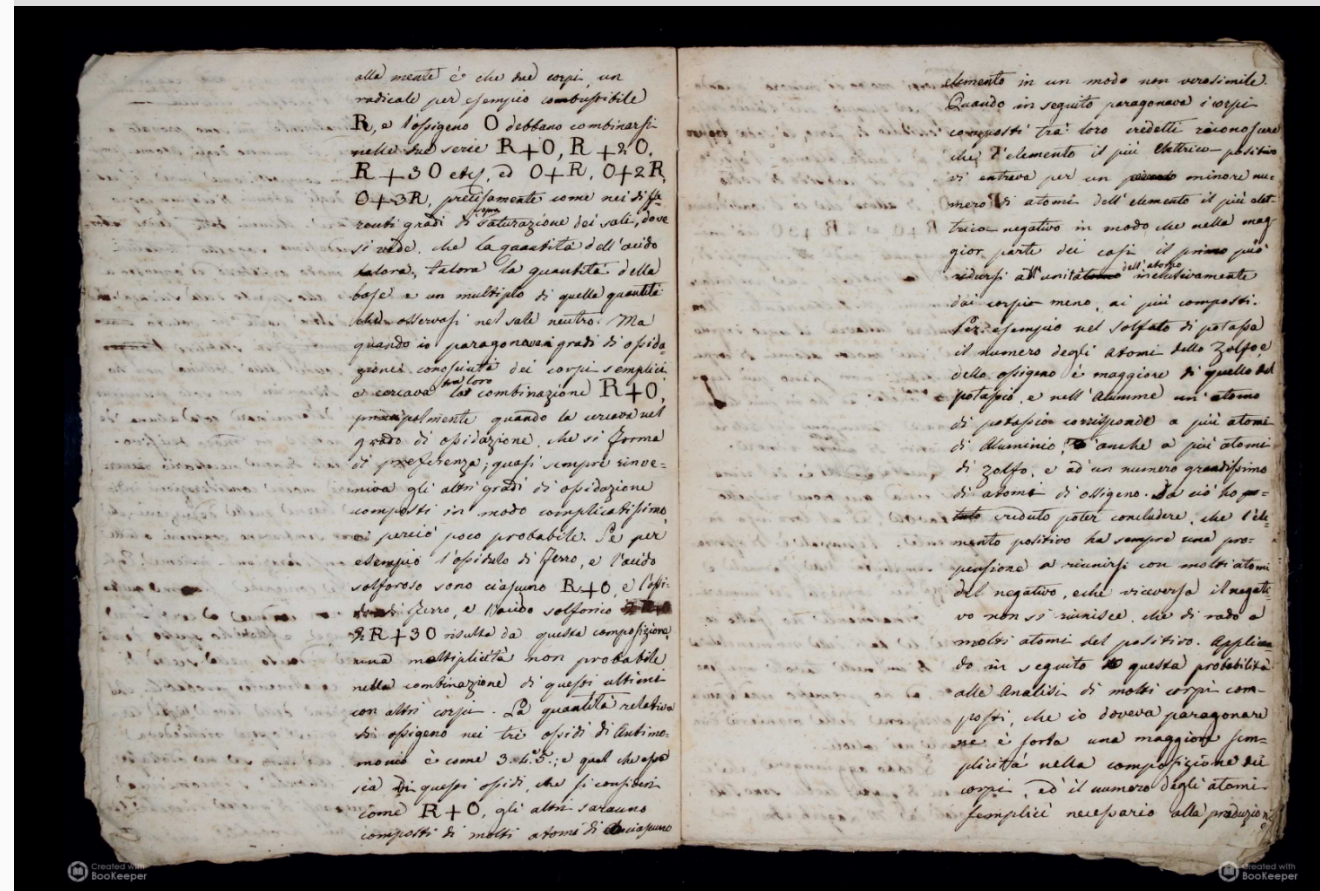 alla mente è che due corpi un
radicale per esempio combustibile
R, e l'ossigeno O debbano combinarsi
nelle due serie R+O, R+2O,
R+3O etc, ed O+R, O+2R,
O+3R, precisamente come nei diffe
renti gradi di saturazione dei sali, dove
si vede, che la quantità dell'acido
talora, talora la quantità della
base è un multiplo di quella quantità
che osservasi nel sale neutro. Ma
quando io paragonava i gradi di ossida
zione conosciuti dei corpi semplici
e cercava tra loro la combinazione R+O,
principalmente quando la cercava nel
grado di ossidazione, che si forma
di preferenza; quasi sempre rinve=
niva gli altri gradi di ossidazione
composti in modo complicatissimo,
e perciò poco probabile. Se per
esempio l'ossidulo di ferro, e l'acido
solforoso sono ciascuno R+O, e l'ossi
do di ferro, e l'acido solforico
2R+3O risulta da questa composizione
una molteplicità non probabile
nella combinazione di questi ultimi
con altri corpi. La quantità relativa
di ossigeno nei tre ossidi di Antimo=
monio è come 3.4.5.; e qual che essa
sia di questi ossidi, che si consideri
come R+O, gli altri saranno
composti di molti atomi di ciascuno
elemento in un modo non verosimile.
Quando in seguito paragonava i corpi
composti tra loro credetti riconoscere
che l'elemento il più elettrico-positivo
vi entrava per un minore nu=
mero di atomi dell'elemento il più elet=
trico negativo in modo che nella mag=
gior parte dei casi il primo può
ridursi all'unità dell'atomo inclusivamente
dai corpi meno, ai più composti.
Per esempio nel solfato di potassa
il numero degli atomi dello Zolfo, e
dello ossigeno è maggiore di quello del
potassio, e nell'Alumme un'atomo
di potassio corrisponde a più atomi
di Aluminio, anche a più atomi
di Zolfo, e ad un numero grandissimo
di atomi di ossigeno. Da ciò ho
creduto poter concludere, che l'ele=
mento positivo ha sempre una pro=
pensione a riunirsi con molti atomi
del negativo, e che viceversa il negati
vo non si riunisce che di rado a
molti atomi del positivo. Applican
do in seguito questa probabilità
alle Analisi di molti corpi com=
posti, che io doveva paragonare
ne è sorta una maggiore sem=
plicità nella composizione dei
corpi, ed il numero degli atomi
semplici necessario alla produzione
Created with
BooKeeper
Created with
BooKeeper